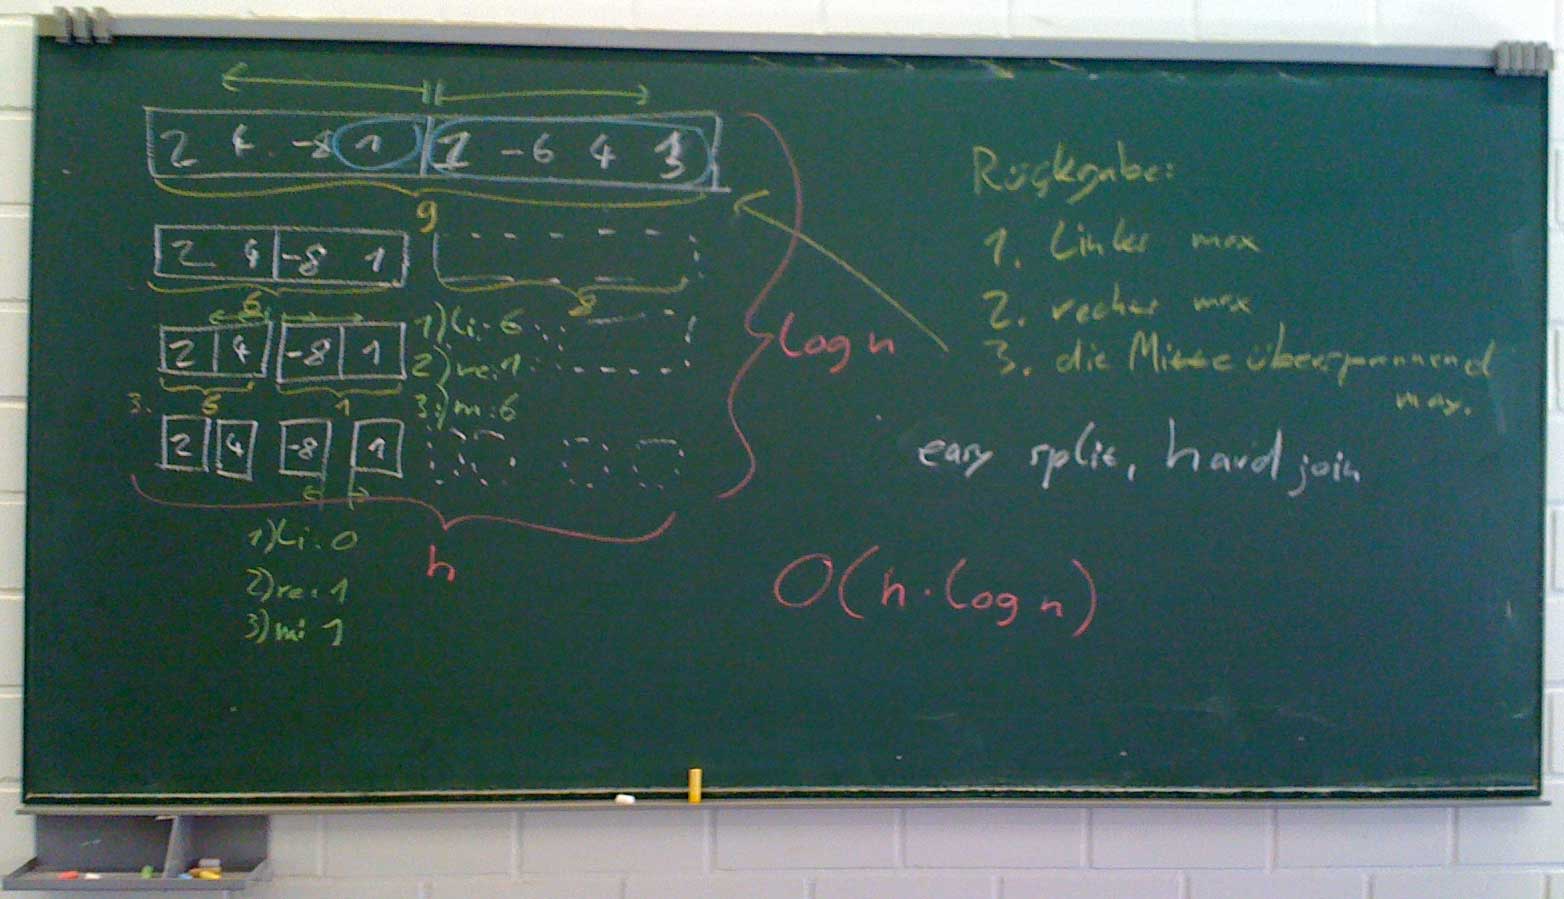 2 4 -8 1 -6 4
9
2 4 -8 1
6 8
2 4 -8 1
1) li: 6
2) re: 1
3) m: 6
3. 6 1
2 4 -8 1
log n
n
1) li: 0
2) re: 1
3) mi 1
Rückgabe:
1. linker max
2. rechter max
3. die Mitte überspannend
max.
easy split, hard join
O(n·log n)